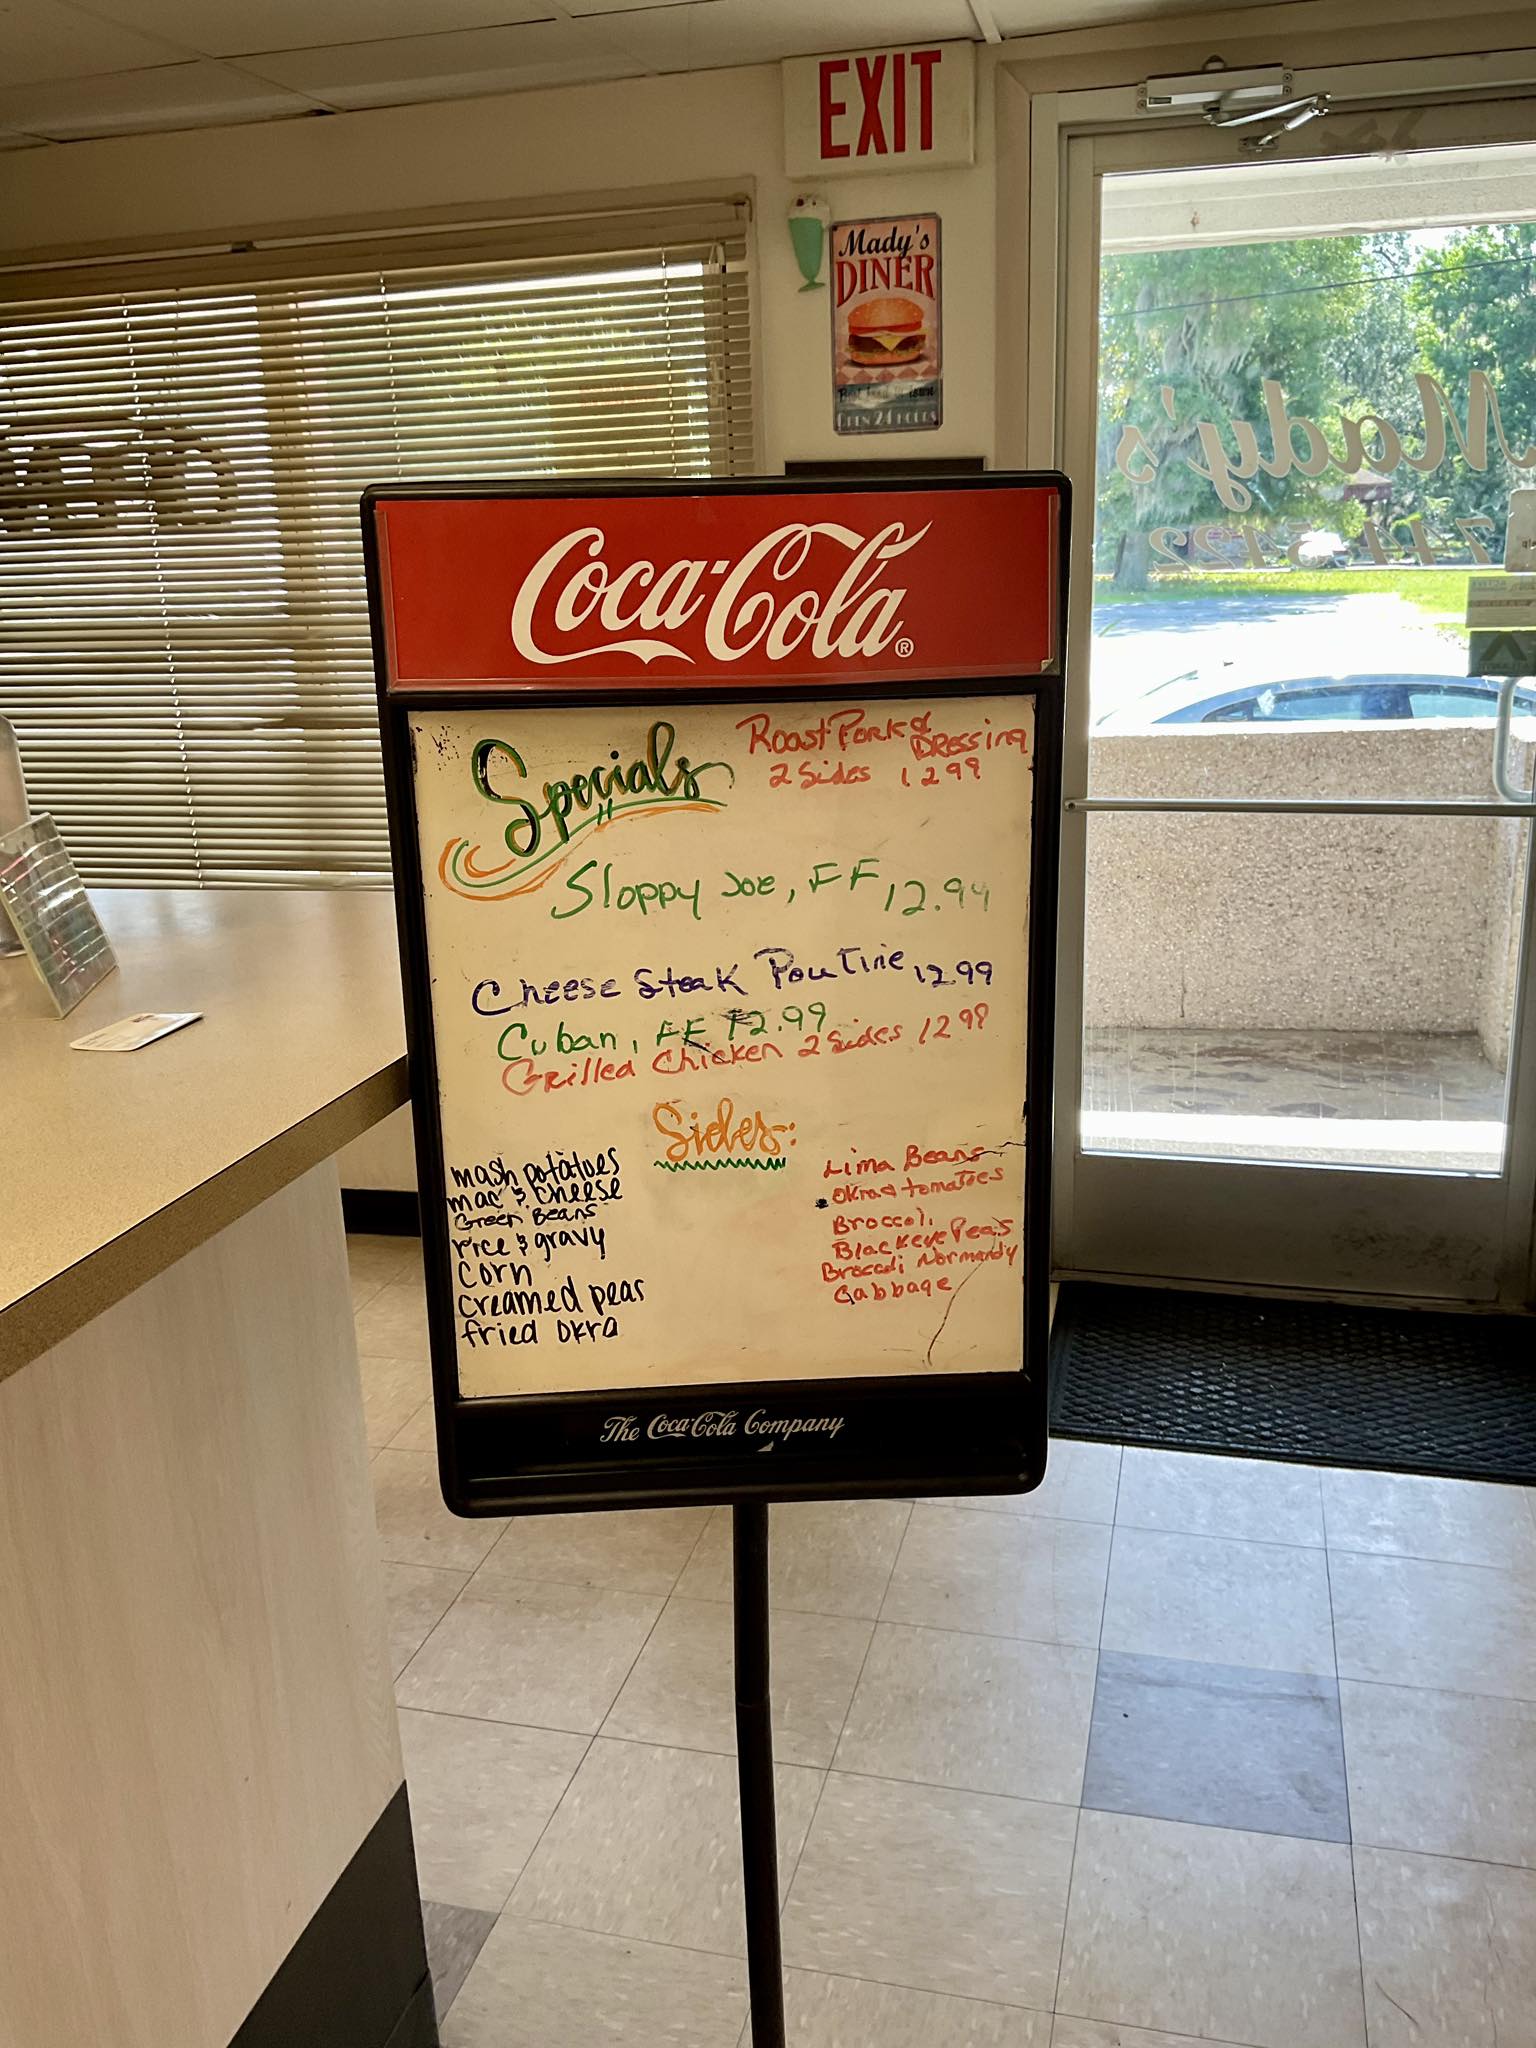 EXIT
Mady's
DINER
OPEN 24 HOURS
Mady's
Coca-Cola®
Specials
Roast Pork &
Dressing
2 Sides 12 99
Sloppy Joe, FF 12.99
Cheese Steak Poutine 12 99
Cuban, FF 12.99
Grilled Chicken 2 Sides 12 99
Sides:
mash potatoes
mac & cheese
Green Beans
rice & gravy
corn
creamed peas
fried okra
Lima Beans
okra & tomatoes
Broccoli
Blackeye Peas
Broccoli Normandy
Cabbage
The Coca-Cola Company